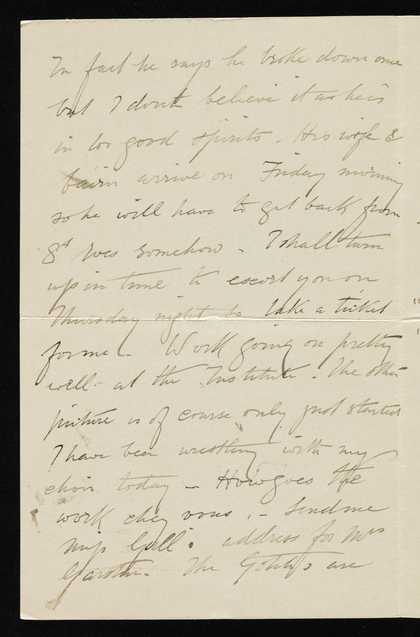 In fact he says he broke down once
but I dont believe it as he is
in too good spirits. His wife &
bairn arrive on Friday morning
so he will have to get back from
Gd Roes somehow. I shall turn
up in time to escort you on
Thursday night so take a ticket
for me. Work going on pretty
well at the Institute. The other
picture is of course only just started
I have been wrestling with my
choir today - How goes the
work chez vous. - Send me
Miss Gill's address for Mrs
The are